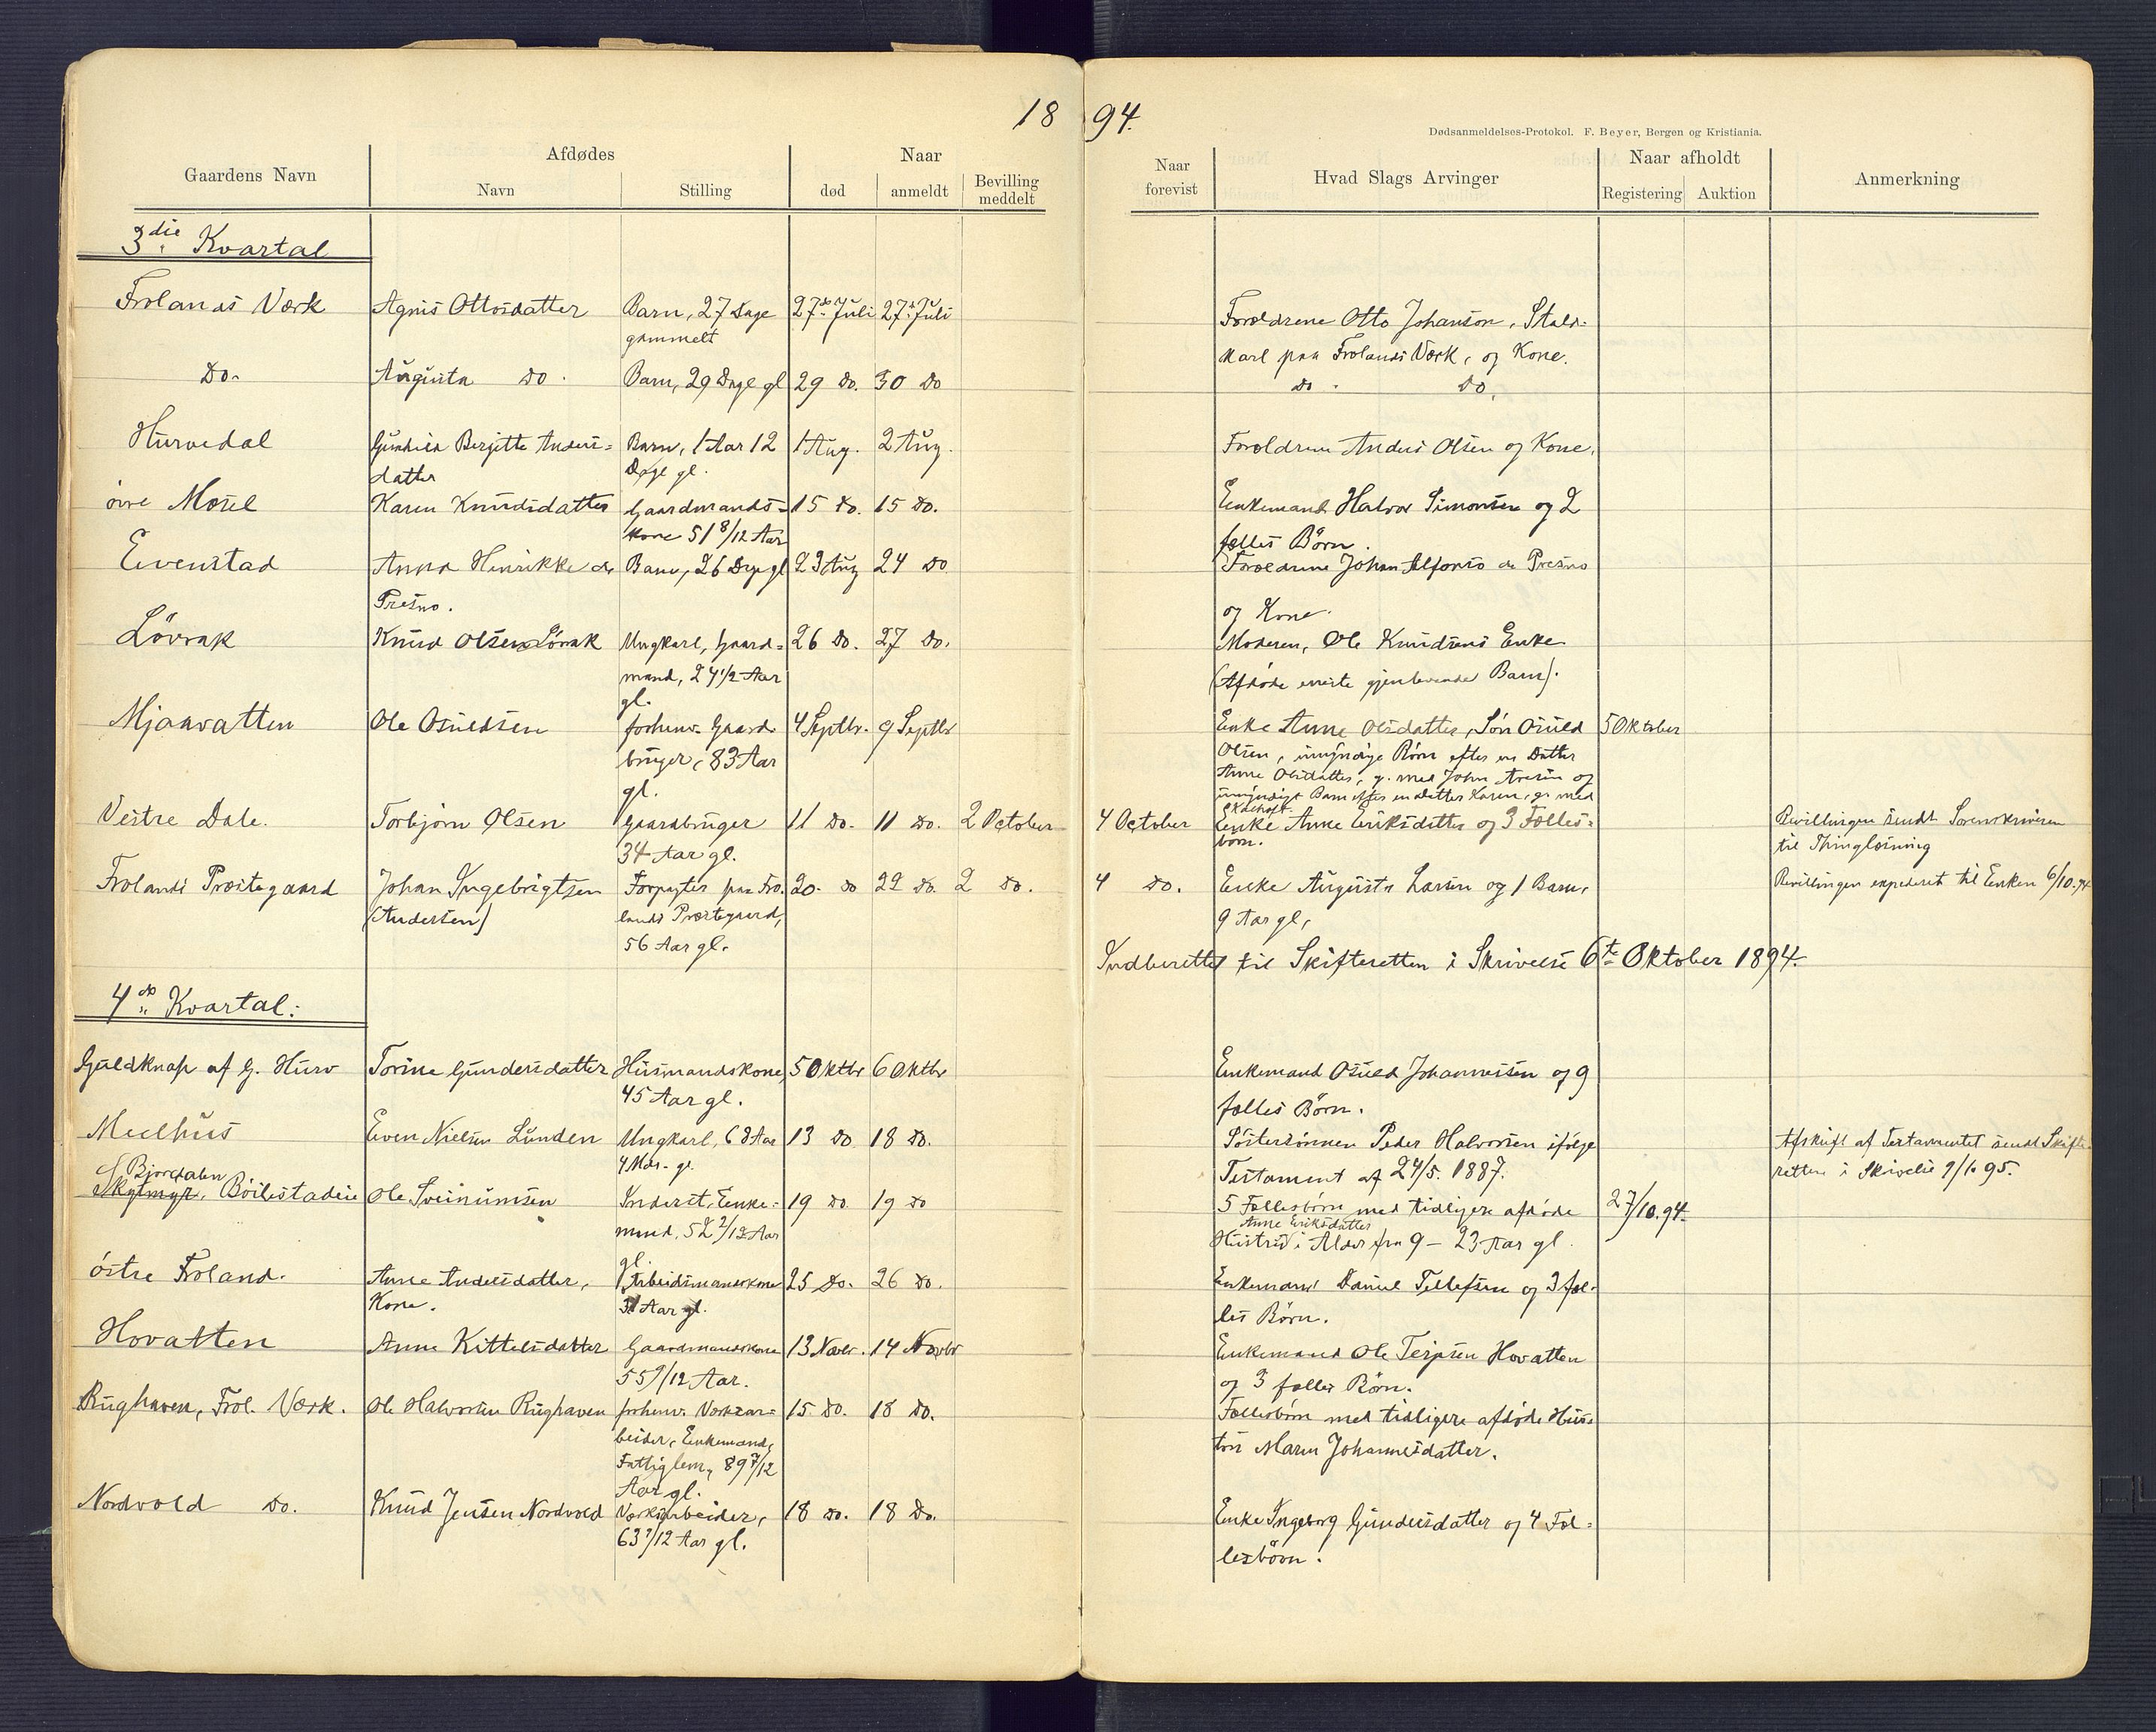 1894.
Dødsanmeldelses-Protokol. F. Beyer, Bergen og Kristiania.
Gaardens Navn
Afdødes
Navn
Stilling
Naar
død
anmeldt
Bevilling
meddelt
Naar
forevist
Hvad Slags Arvinger
Naar afholdt
Registering
Auktion
Anmerkning
3die Kvartal
Frolands Værk
Agnes Ottosdatter
Barn, 27 Dage
gammelt
27de Juli
27de Juli
Forældrene Otto Johanson, Stald-
karl paa Frolands Værk, og Kone.
Do.
Augusta Do.
Barn, 29 Dage gl
29 Do.
30 Do
Do. Do.
Hurvedal
Gunhild Bergitte Anders=
datter
Barn, 1 Aar 12
Dage gl.
1 Aug.
2 Aug.
Forældrene Anders Olsen og Kone.
övre Mosel
Karen Knudsdatter
Gaardmands=
kone 51 8/12 Aar
15 Do.
15 Do.
Enkemand Halvor Simonsen og 2
fælles Börn.
Evenstad
Anna Henrikke de
Presno.
Barn, 26 Dage gl
23 Aug
24 Do
Forældrene Johan Alfonso de Presno
og Kone.
Lövrak
Knud Olsen Lövrak
Ungkarl, Gaard=
mand, 24 1/2 Aar
gl.
26 Do.
27 Do.
Moderen, Ole Knudsens Enke
(Afdöde eneste gjenlevende Barn).
Mjaavatten
Ole Osuldsen
forhenv. Gaard
bruger, 83 Aar
gl.
4 Septbr.
9 Septbr
Enke Anne Olsdatter, Sön Osuld
Olsen, umyndige Börn efter en Datter
Anne Olsdatter, g. med John og
umyndigt Barn efter en Datter Karen, g. med
5 Oktober
Vestre Dale.
Torbjørn Olsen
Gaardbruger
34 Aar gl.
11 Do.
11 Do.
2 October
4 October
Enke Anne Eriksdatter og 3 Fælles=
börn.
Bevillingen sendt Sorenskriveren
til Thinglæsning
Frolands Præstegaard
Johan Ingebrigtsen
(Andersen)
Forpagter paa Fro.
lands Præstegaard,
56 Aar gl.
20. Do
22 Do.
2 Do.
4 Do.
Enke Augusta Larsen og 1 Barn,
9 Aar gl,
Bevillingen expederet til Enken 6/10.94
Indberettet til Skifteretten i Skrivelse 6te Oktober 1894.
4de Kvartal:
Guldknap af G. Hurv
Torine Gundersdatter
Husmandskone,
45 Aar gl.
5 Oktbr
6 Oktbr
Enkemand Osuld Johannesen og 9
fælles Börn.
Meelhus
Even Nielsen Lunden
Ungkarl, 68 Aar
4 Mdr. gl.
13 Do
18 Do.
Söstersönnen Peder Halvorsen ifölge
Testament af 24/5. 1887.
Afskrift af Testamentet sendt Skifte-
retten i Skrivelse 9/1 95.
Bjordalen
Skytmyr, Böilestadeie
Ole Sveinumsen
Inderst, Enke=
mand, 52 2/12 Aar
gl.
19 Do.
19 Do
5 Fællesbörn med tidligere afdöde
Anne Eriksdatter
Hustru i Alder fra 9 – 23 Aar gl.
27/10.94.
östre Froland.
Anne Andersdatter,
Kone.
Arbeidsmandskone
Aar gl.
25 Do.
26 Do.
Enkemand Daniel Tellefsen og 3 fæl-
les Börn.
Hovatten
Anne Kittelsdatter
Gaardmandskone
55 9/12 Aar.
13 Novbr.
14 Novbr
Enkemand Ole Terjesen Hovatten
og 3 fælles Börn.
Rughaven, Frol. Værk.
Ole Halvorsen Rughaven
forhenv. Værksar=
beider, Enkemand,
Fattiglem, 89 7/12
Aar gl.
15 Do.
18 Do.
Fællesbörn med tidligere afdöde Hus=
tru Maren Johannesdatter.
Nordvold Do.
Knud Jensen Nordvold
Værksarbeider,
63 7/12 Aar gl.
18 Do.
18 Do.
Enke Ingeborg Gundersdatter og 4 Fæl=
lesbörn.